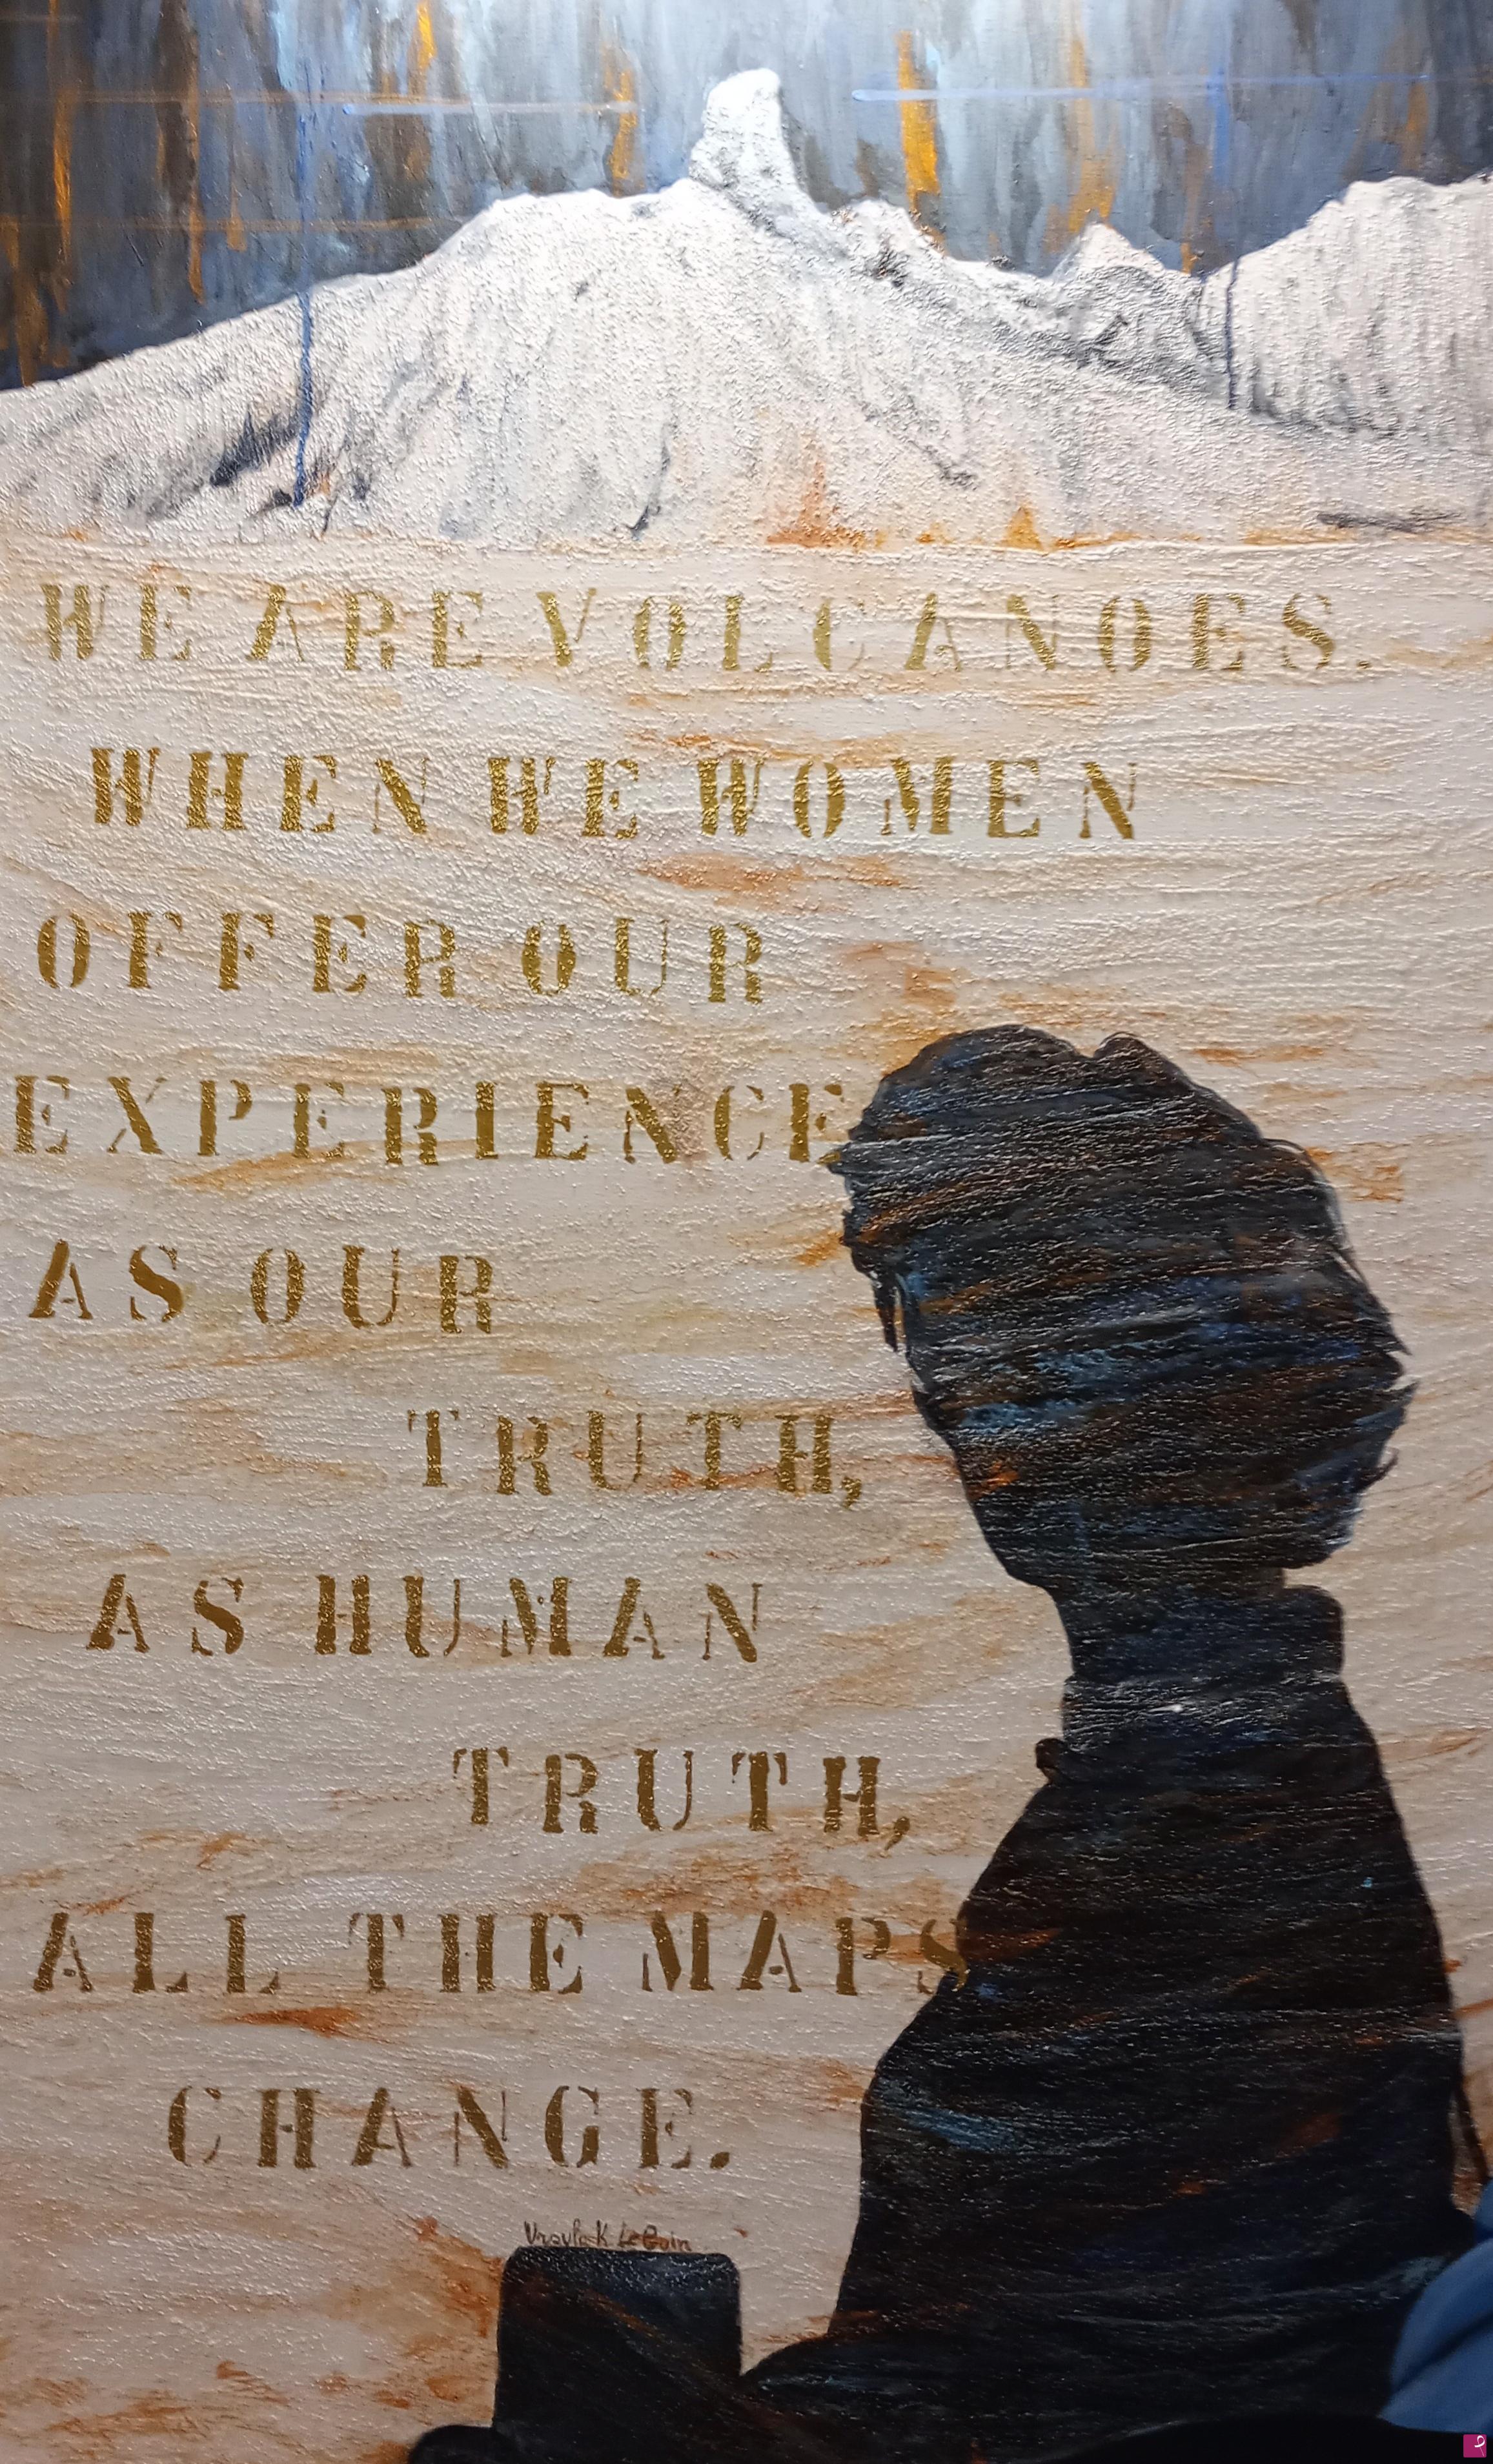 WE ARE VOLCANOES.
WHEN WE WOMEN
OFFER OUR
EXPERIENCE
AS OUR
TRUTH,
AS HUMAN
TRUTH,
ALL THE MAPS
CHANGE.
Ursula K. Le Guin